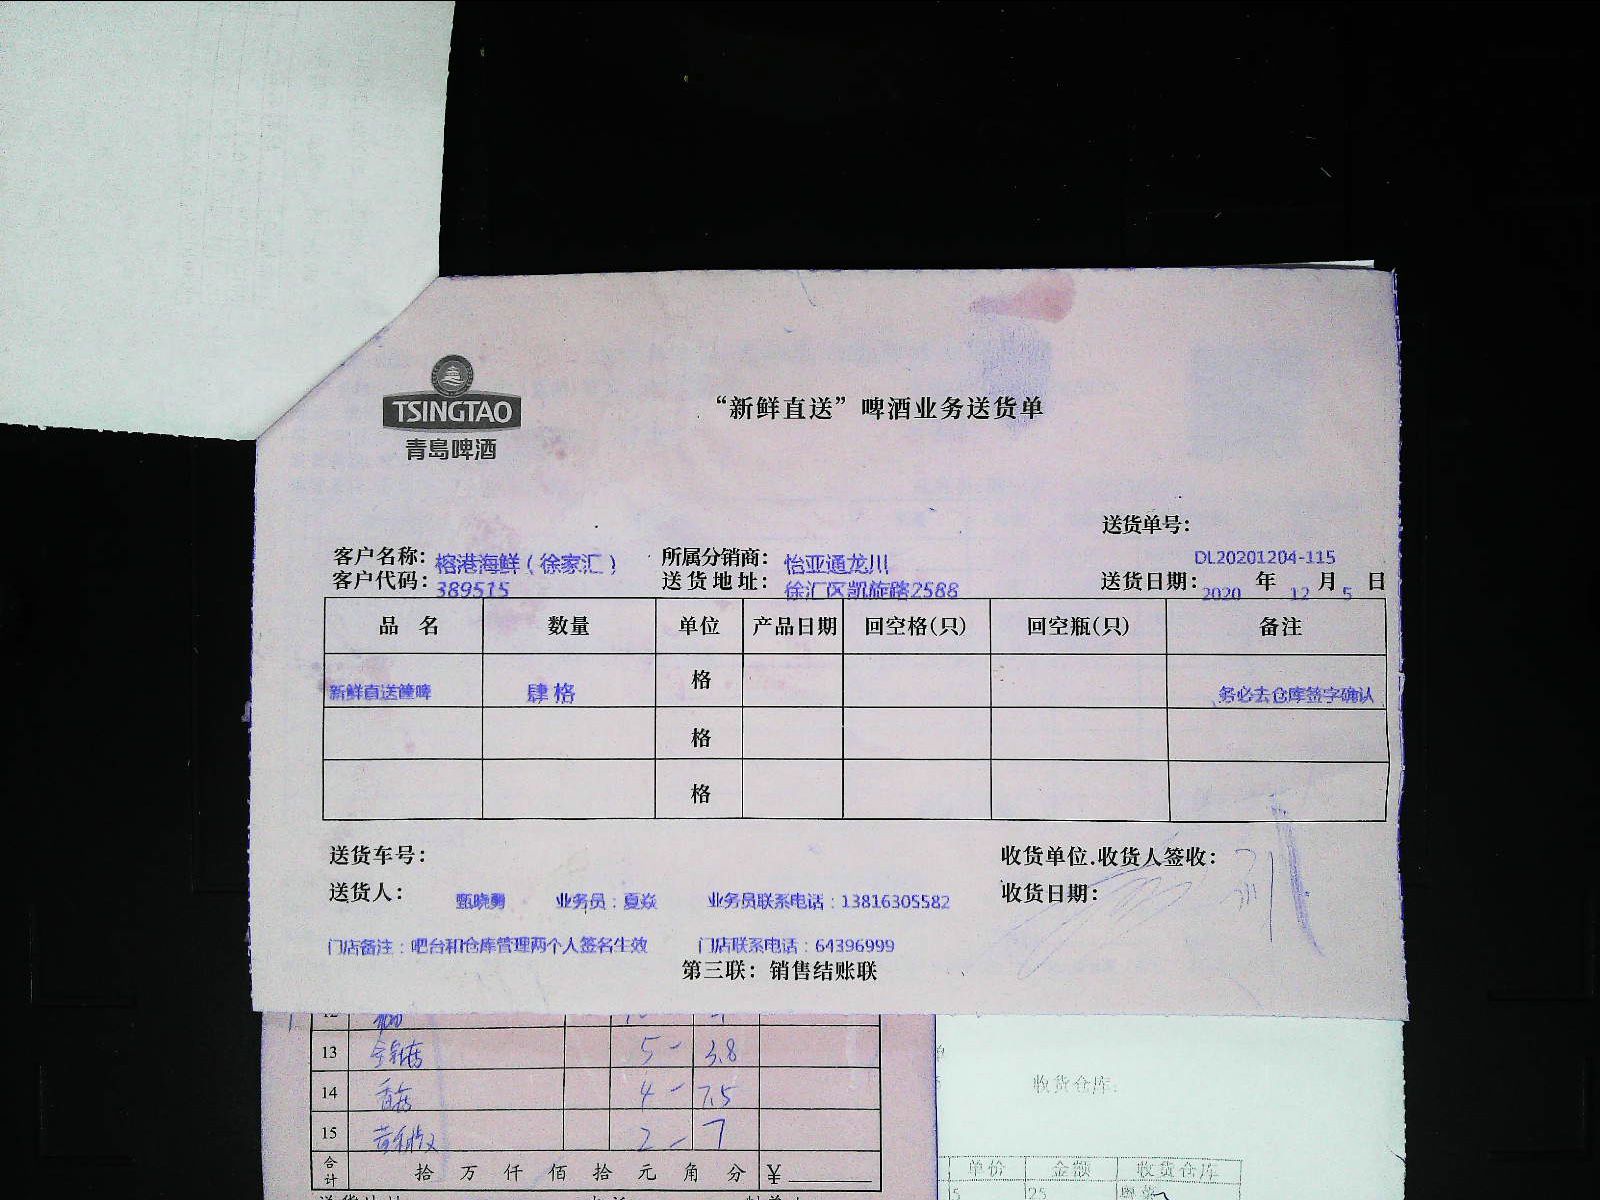 TSINGTAO
青島啤酒
“新鲜直送”啤酒业务送货单
送货单号：
DL20201204-115
客户名称：榕港海鲜（徐家汇） 所属分销商：怡亚通龙川
客户代码：389515 送货地址：徐汇区凯旋路2588 送货日期：2020 年 12 月 5 日
品 名 数量 单位 产品日期 回空格(只) 回空瓶(只) 备注
新鲜直送醰啤 肆格 格 务必去仓库签字确认
格
格
送货车号： 收货单位.收货人签收：
送货人： 甄晓勇 业务员：夏焱 业务员联系电话：13816305582 收货日期：
门店备注：吧台和仓库管理两个人签名生效 门店联系电话：64396999
第三联：销售结账联
13 5- 3.8
14 4- 7.5
15 2- 7
合计 拾 万 仟 佰 拾 元 角 分 ¥
收货仓库:
单价 金额 收货仓库
5 25